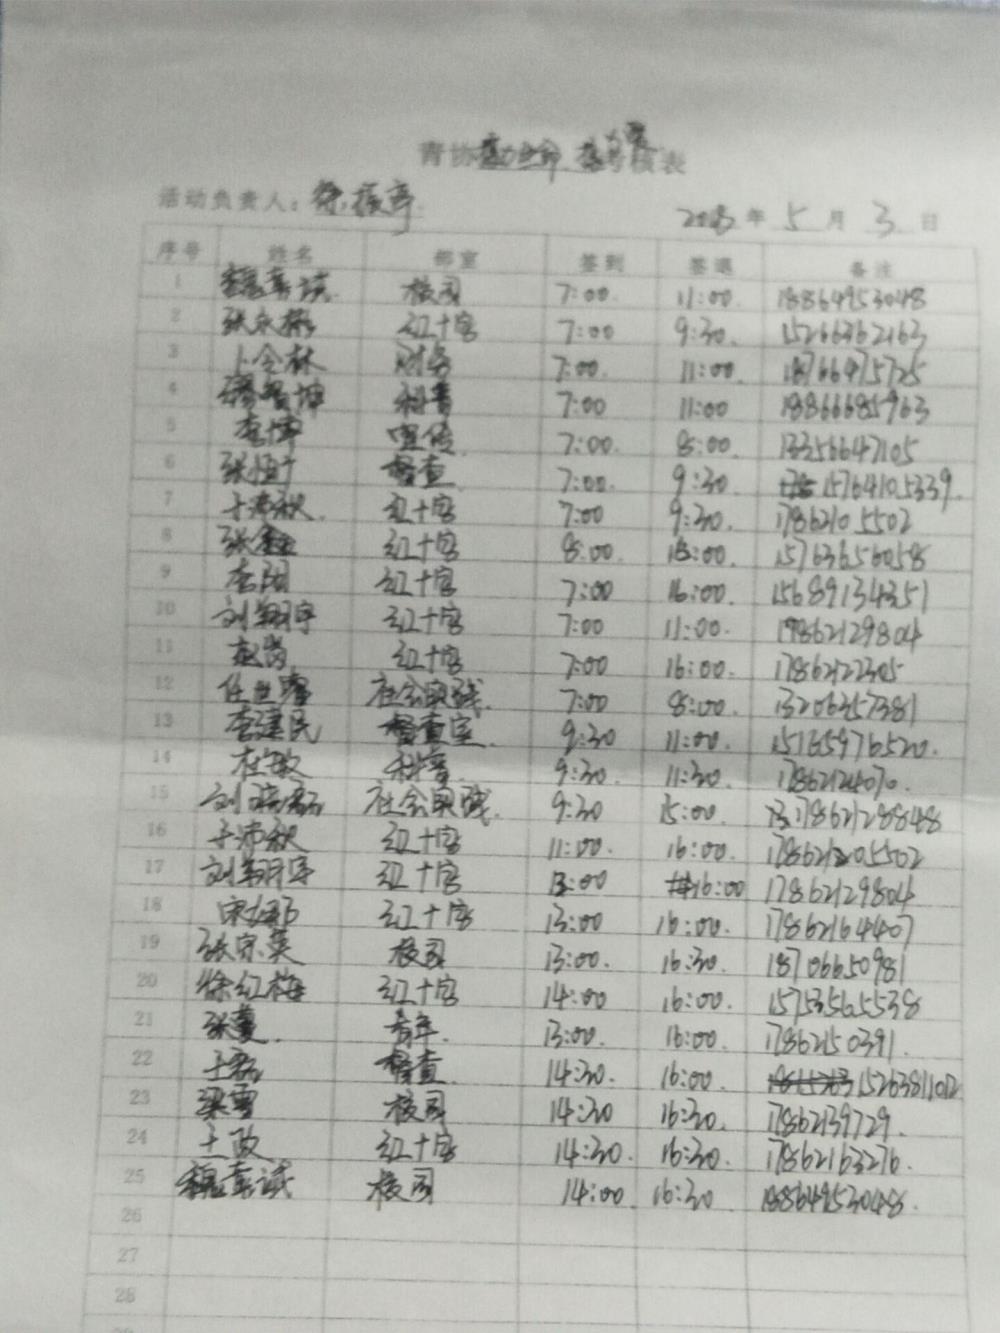 青协 考核表
活动负责人：徐振亭 2018年5月3日
序号 姓名 部室 签到 签退 备注
1 校园 7:00 11:00 18864953048
2 张永 红十字 7:00 9:30 15266362163
3 卜令林 财务 7:00 11:00 18766475725
4 坤 科普 7:00 11:00 18866685963
5 李博 宣传 7:00 8:00 13356647105
6 张恒 督查 7:00 9:30 15764105339
7 于沛秋 红十字 7:00 9:30 17862105502
8 张鑫 红十字 8:00 15763656058
9 李阳 红十字 7:00 16:00 15689134351
10 刘翔宇 红十字 7:00 11:00 17862129804
11 红十字 7:00 16:00 17862122305
12 任世 社会实践 7:00 8:00 13206357381
13 李建民 督查室 9:30 11:00 15765976520
14 杜敏 科普 9:30 11:30 17862124070
15 刘 社会实践 9:30 15:00 17862128848
16 于沛秋 红十字 11:00 16:00 17862105502
17 刘翔宇 红十字 13:00 16:00 17862129804
18 宋 红十字 13:00 16:00 17862164407
19 张宗英 13:00 16:30 18706650981
20 徐红梅 红十字 14:00 16:00 15753565538
21 张蔓 青年 13:00 16:00 17862150391
22 王磊 督查 14:30 16:00 15263811012
23 梁雪 14:30 16:30 17862139729
24 王政 红十字 14:30 16:30 17862163276
25 14:00 16:30 18864953048
26
27
28